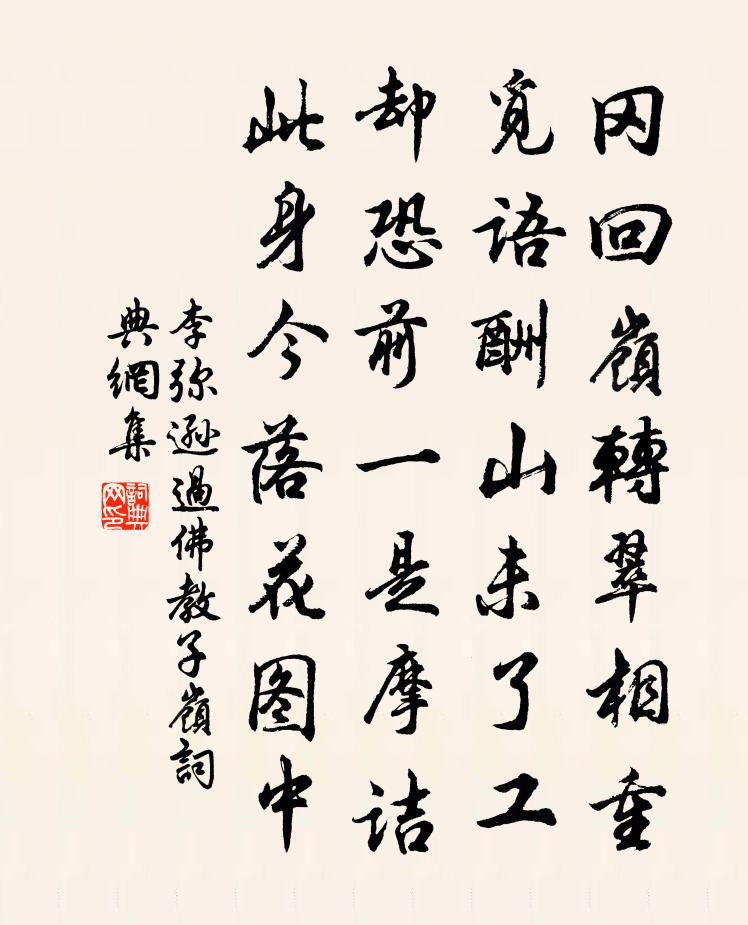 冈回嶺轉翠相重
覓語酬山未了工
却恐前一是摩诘
此身今落花图中
李弥遜過佛教子嶺詞
典網集
詞典
网印